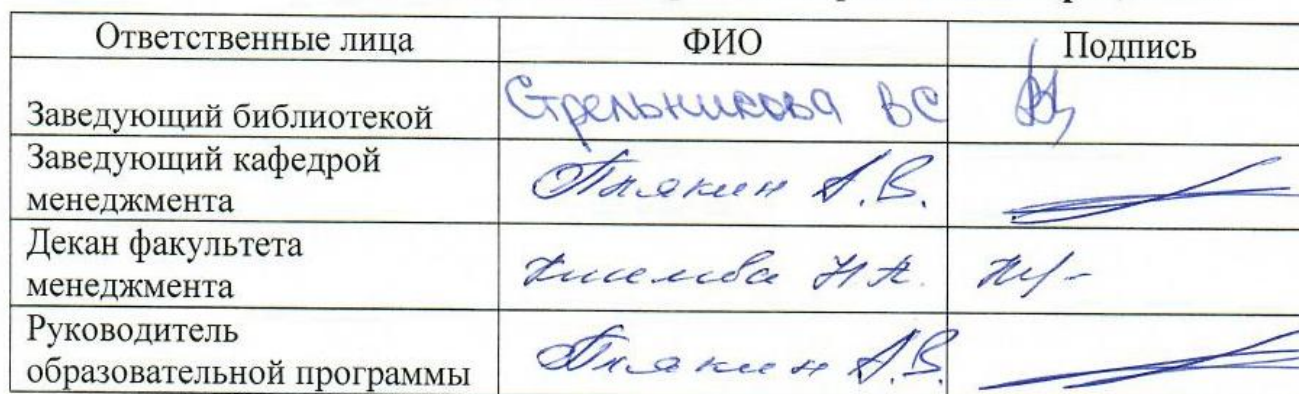 Ответственные лица ФИО Подпись
Заведующий библиотекой Стрельникова ВС
Заведующий кафедрой
менеджмента А.В.
Декан факультета
менеджмента Н.А.
Руководитель
образовательной программы А.В.